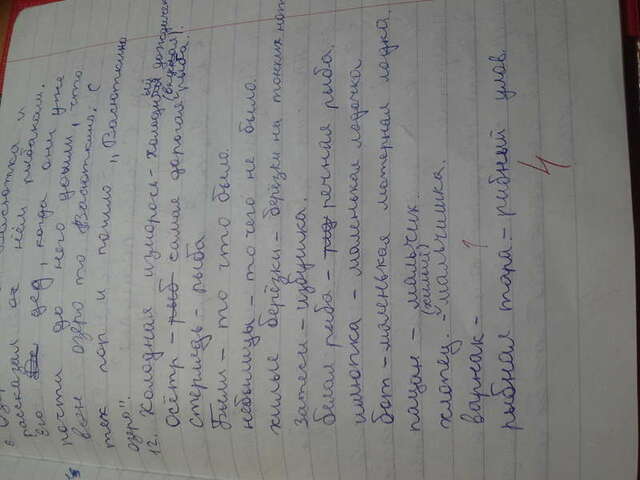 Васютка и
рассказал о нём рыбакам.
Его дед, когда они уже
почти до него дошли, что
озеро то Васюткино. С
тех пор и пошло „Васюткино
озеро".
12. Холодная изморось - холодный
Осётр - рыб самая дорогая (видная) рыба.
стерлядь - рыба
Были - то что было.
небылицы - то чего не было.
хилые берёзки - берёзки на тонких ног
Затеси - избушка.
белая рыба - речная рыба.
шлюпка - маленькая лодочка
бот - маленькая моторная лодка.
пацан - мальчик.
хлопец. - мальчишка.
варнак -
рыбная тара - рыбный улов.
4